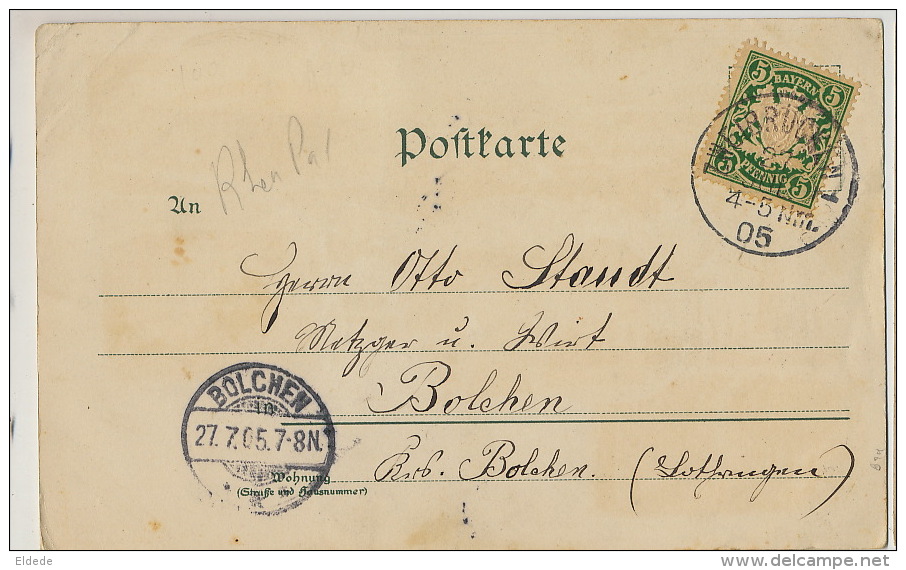 5 BAYERN 5
5 PFENNIG 5
4-5 Nm.
05
Postkarte
Rhen Pal
An
Herrn Otto Staudt
Metzger u. Wirt
Bolchen
Krs. Bolchen. (Lothringen)
BOLCHEN
27.7.05.7-8N.
Wohnung
(Straße und Hausnummer)
Eldede
delcampe.net